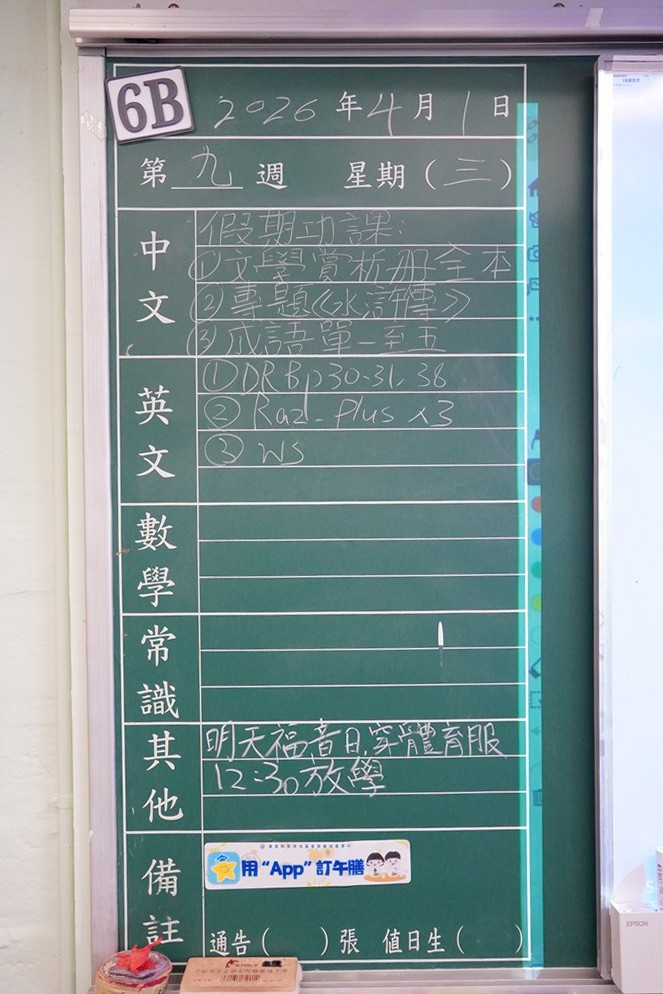 6B
2026年4月1日
第九週 星期(三)
中文
假期功課:
①文學賞析冊全本
②專題《水滸傳》
③成語單一至五
英文
①DRB p30-31, 38
② Raz-Plus x3
③ WS
數學
常識
其他
明天福音日,穿體育服
12:30放學
備註
用“App”訂午膳
通告( )張 值日生( )
EPSON